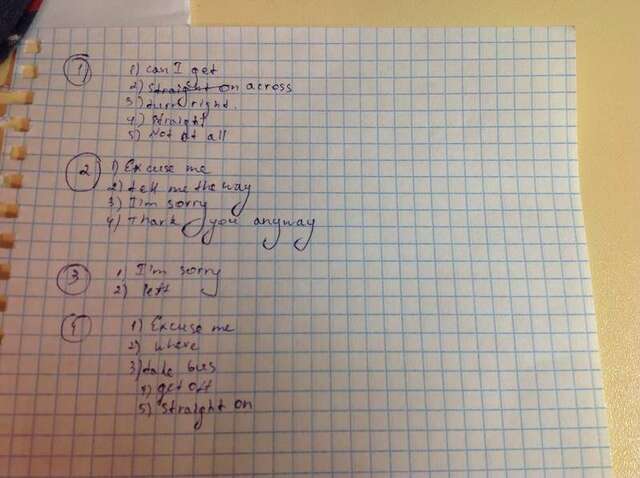 1
1) can I get
2) straight on across
3) turn right.
4) straight
5) Not at all
2
1) Excuse me
2) tell me the way
3) I'm sorry
4) Thank you anyway
3
1, I'm sorry
2) left
4
1) Excuse me
2) where
3) take bus
4) get off
5) straight on